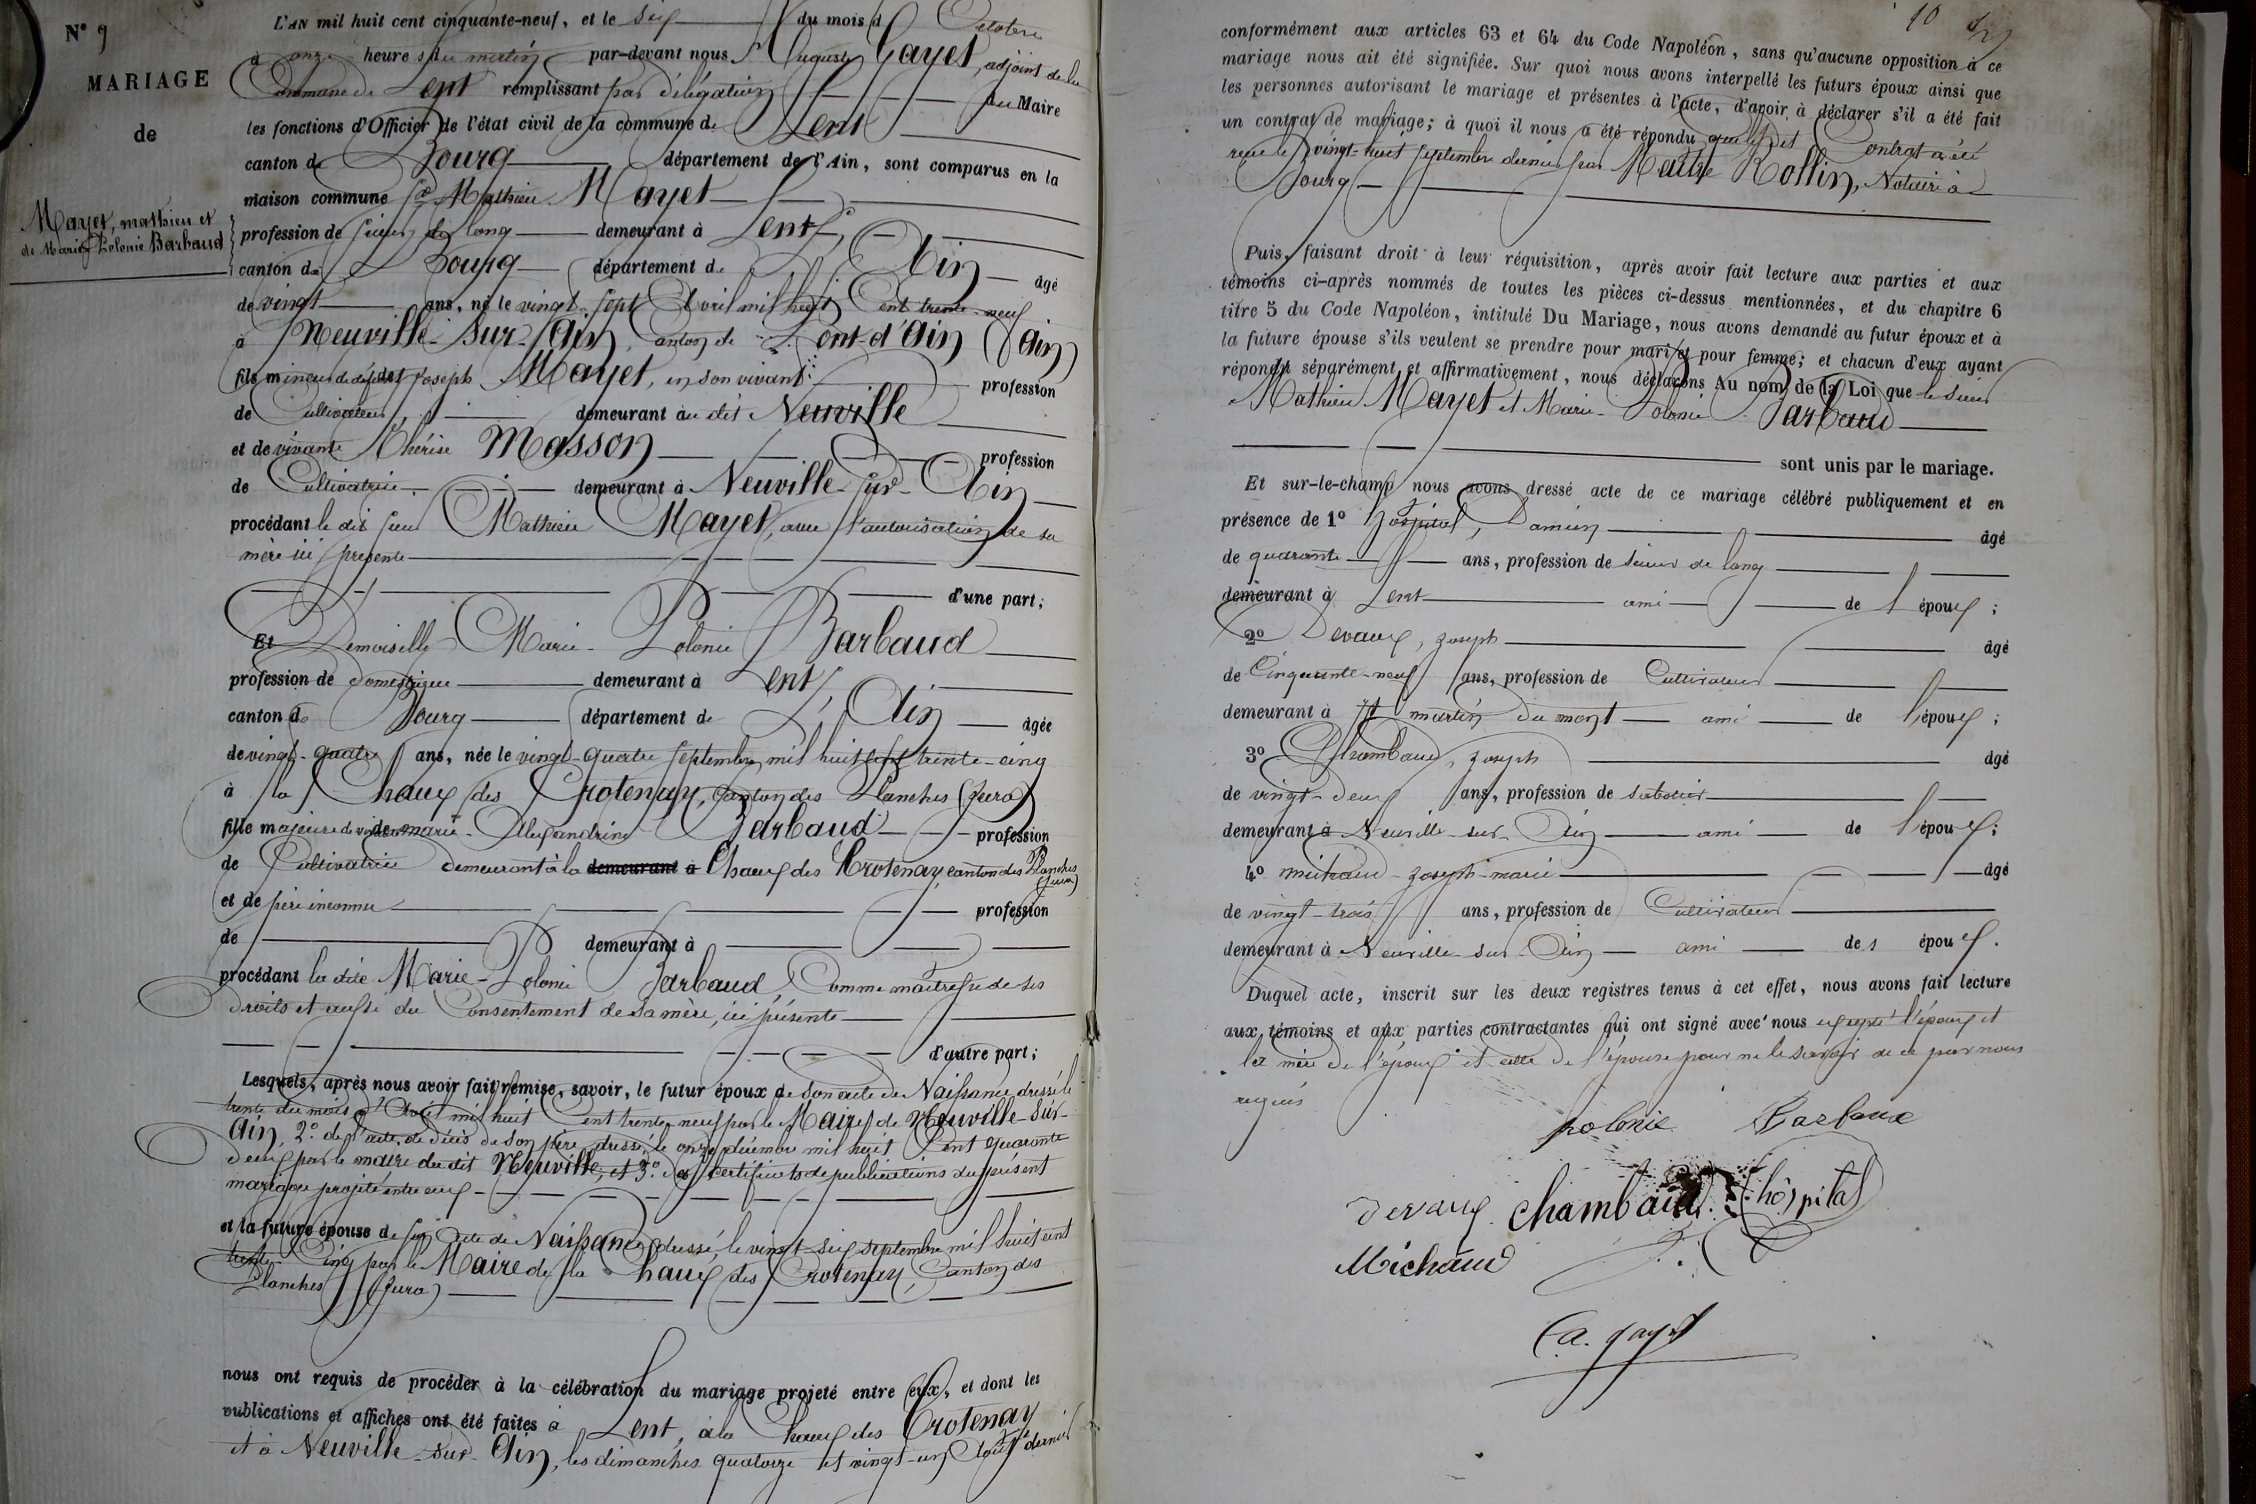 N° 9
MARIAGE
de
Mayet, mathieu et
de Marie Polonie Barbaud
L'AN mil huit cent cinquante-neuf, et le six du mois d'Octobre
à onze heures du matin par-devant nous Auguste Gayet, adjoint de la
Commune de Lent remplissant par délégation du Maire
les fonctions d'Officier de l'état civil de la commune de Lent
canton de Bourg département de l'Ain, sont comparus en la
maison commune Sr Mathieu Mayet
profession de scieur de long demeurant à Lent,
canton de Bourg département de L'Ain âgé
de vingt ans, né le vingt-sept Avril mil huit Cent trente-neuf
à Neuville-Sur-Ain, Canton de Pont-d'Ain (Ain)
fils mineur de défunt Joseph Mayet, en son vivant profession
de Cultivateur, demeurant au dit Neuville
et de vivante Thérèse Masson profession
de Cultivatrice demeurant à Neuville-Sur-Ain
procédant le dit sieur Mathieu Mayet, avec l'autorisation de sa
mère ici présente
d'une part;
Et Demoiselle Marie-Polonie Barbaud
profession de domestique demeurant à Lent,
canton de Bourg département de L'Ain âgée
de vingt-quatre ans, née le vingt-quatre septembre mil huit cent trente-cinq
à la Chaux des Crotenay, Canton des Planches (Jura)
fille majeure de vivante marie-Alexandrine Barbaud profession
de Cultivatrice demeurant à la demeurant à Chaux des Crotenay, canton des Planches
(Jura)
et de père inconnu profession
de demeurant à
procédant la dite Marie-Polonie Barbaud, Comme maîtresse de ses
droits et aussi du Consentement de sa mère, ici présente
d'autre part;
Lesquels, après nous avoir fait remise, savoir, le futur époux de son acte de Naissance dressé le
trente du mois d'Avril mil huit Cent trente neuf par le Maire de Neuville-Sur-
Ain, 2° de l'acte de décès de son père dressé le onze décembre mil huit Cent quarante
deux par le maire du dit Neuville, et 3° des certificats de publications du présent
mariage projeté entre eux
et la future épouse de son Acte de Naissance dressé le vingt-six septembre mil huit cent
trente-Cinq par le Maire de la Chaux des Crotenay, Canton des
Planches (Jura)
nous ont requis de procéder à la célébration du mariage projeté entre eux, et dont les
publications et affiches ont été faites à Lent, à la Chaux des Crotenay
et à Neuville-sur-Ain, les dimanches quatorze et vingt-un Août dernier
10
conformément aux articles 63 et 64 du Code Napoléon, sans qu'aucune opposition à ce
mariage nous ait été signifiée. Sur quoi nous avons interpellé les futurs époux ainsi que
les personnes autorisant le mariage et présentes à l'acte, d'avoir à déclarer s'il a été fait
un contrat de mariage; à quoi il nous a été répondu que le dit Contrat a été
reçu le vingt-huit septembre dernier par Maître Rollin, Notaire à
Bourg
Puis, faisant droit à leur réquisition, après avoir fait lecture aux parties et aux
témoins ci-après nommés de toutes les pièces ci-dessus mentionnées, et du chapitre 6
titre 5 du Code Napoléon, intitulé Du Mariage, nous avons demandé au futur époux et à
la future épouse s'ils veulent se prendre pour mari et pour femme; et chacun d'eux ayant
répondu séparément et affirmativement, nous déclarons Au nom de la Loi que le Sieur
Mathieu Mayet et Marie-Polonie Barbaud
sont unis par le mariage.
Et sur-le-champ nous avons dressé acte de ce mariage célébré publiquement et en
présence de 1° hospital, Damien âgé
de quarante ans, profession de scieur de long
demeurant à Lent ami de l'époux;
2° Devaux, joseph âgé
de Cinquante-neuf ans, profession de Cultivateur
demeurant à St martin du mont ami de l'époux;
3° Chambaud, joseph âgé
de vingt-deux ans, profession de sabotier
demeurant à Neuville-sur-Ain ami de l'époux;
4° michaud joseph-marie âgé
de vingt-trois ans, profession de Cultivateur
demeurant à Neuville-sur-Ain ami des époux.
Duquel acte, inscrit sur les deux registres tenus à cet effet, nous avons fait lecture
aux témoins et aux parties contractantes qui ont signé avec nous excepté l'époux et
la mère de l'époux et celle de l'épouse pour ne le savoir de ce par nous
requis
polonie Barbaux
Devaux Chambaud. hôspital
Michaud
A. gayet